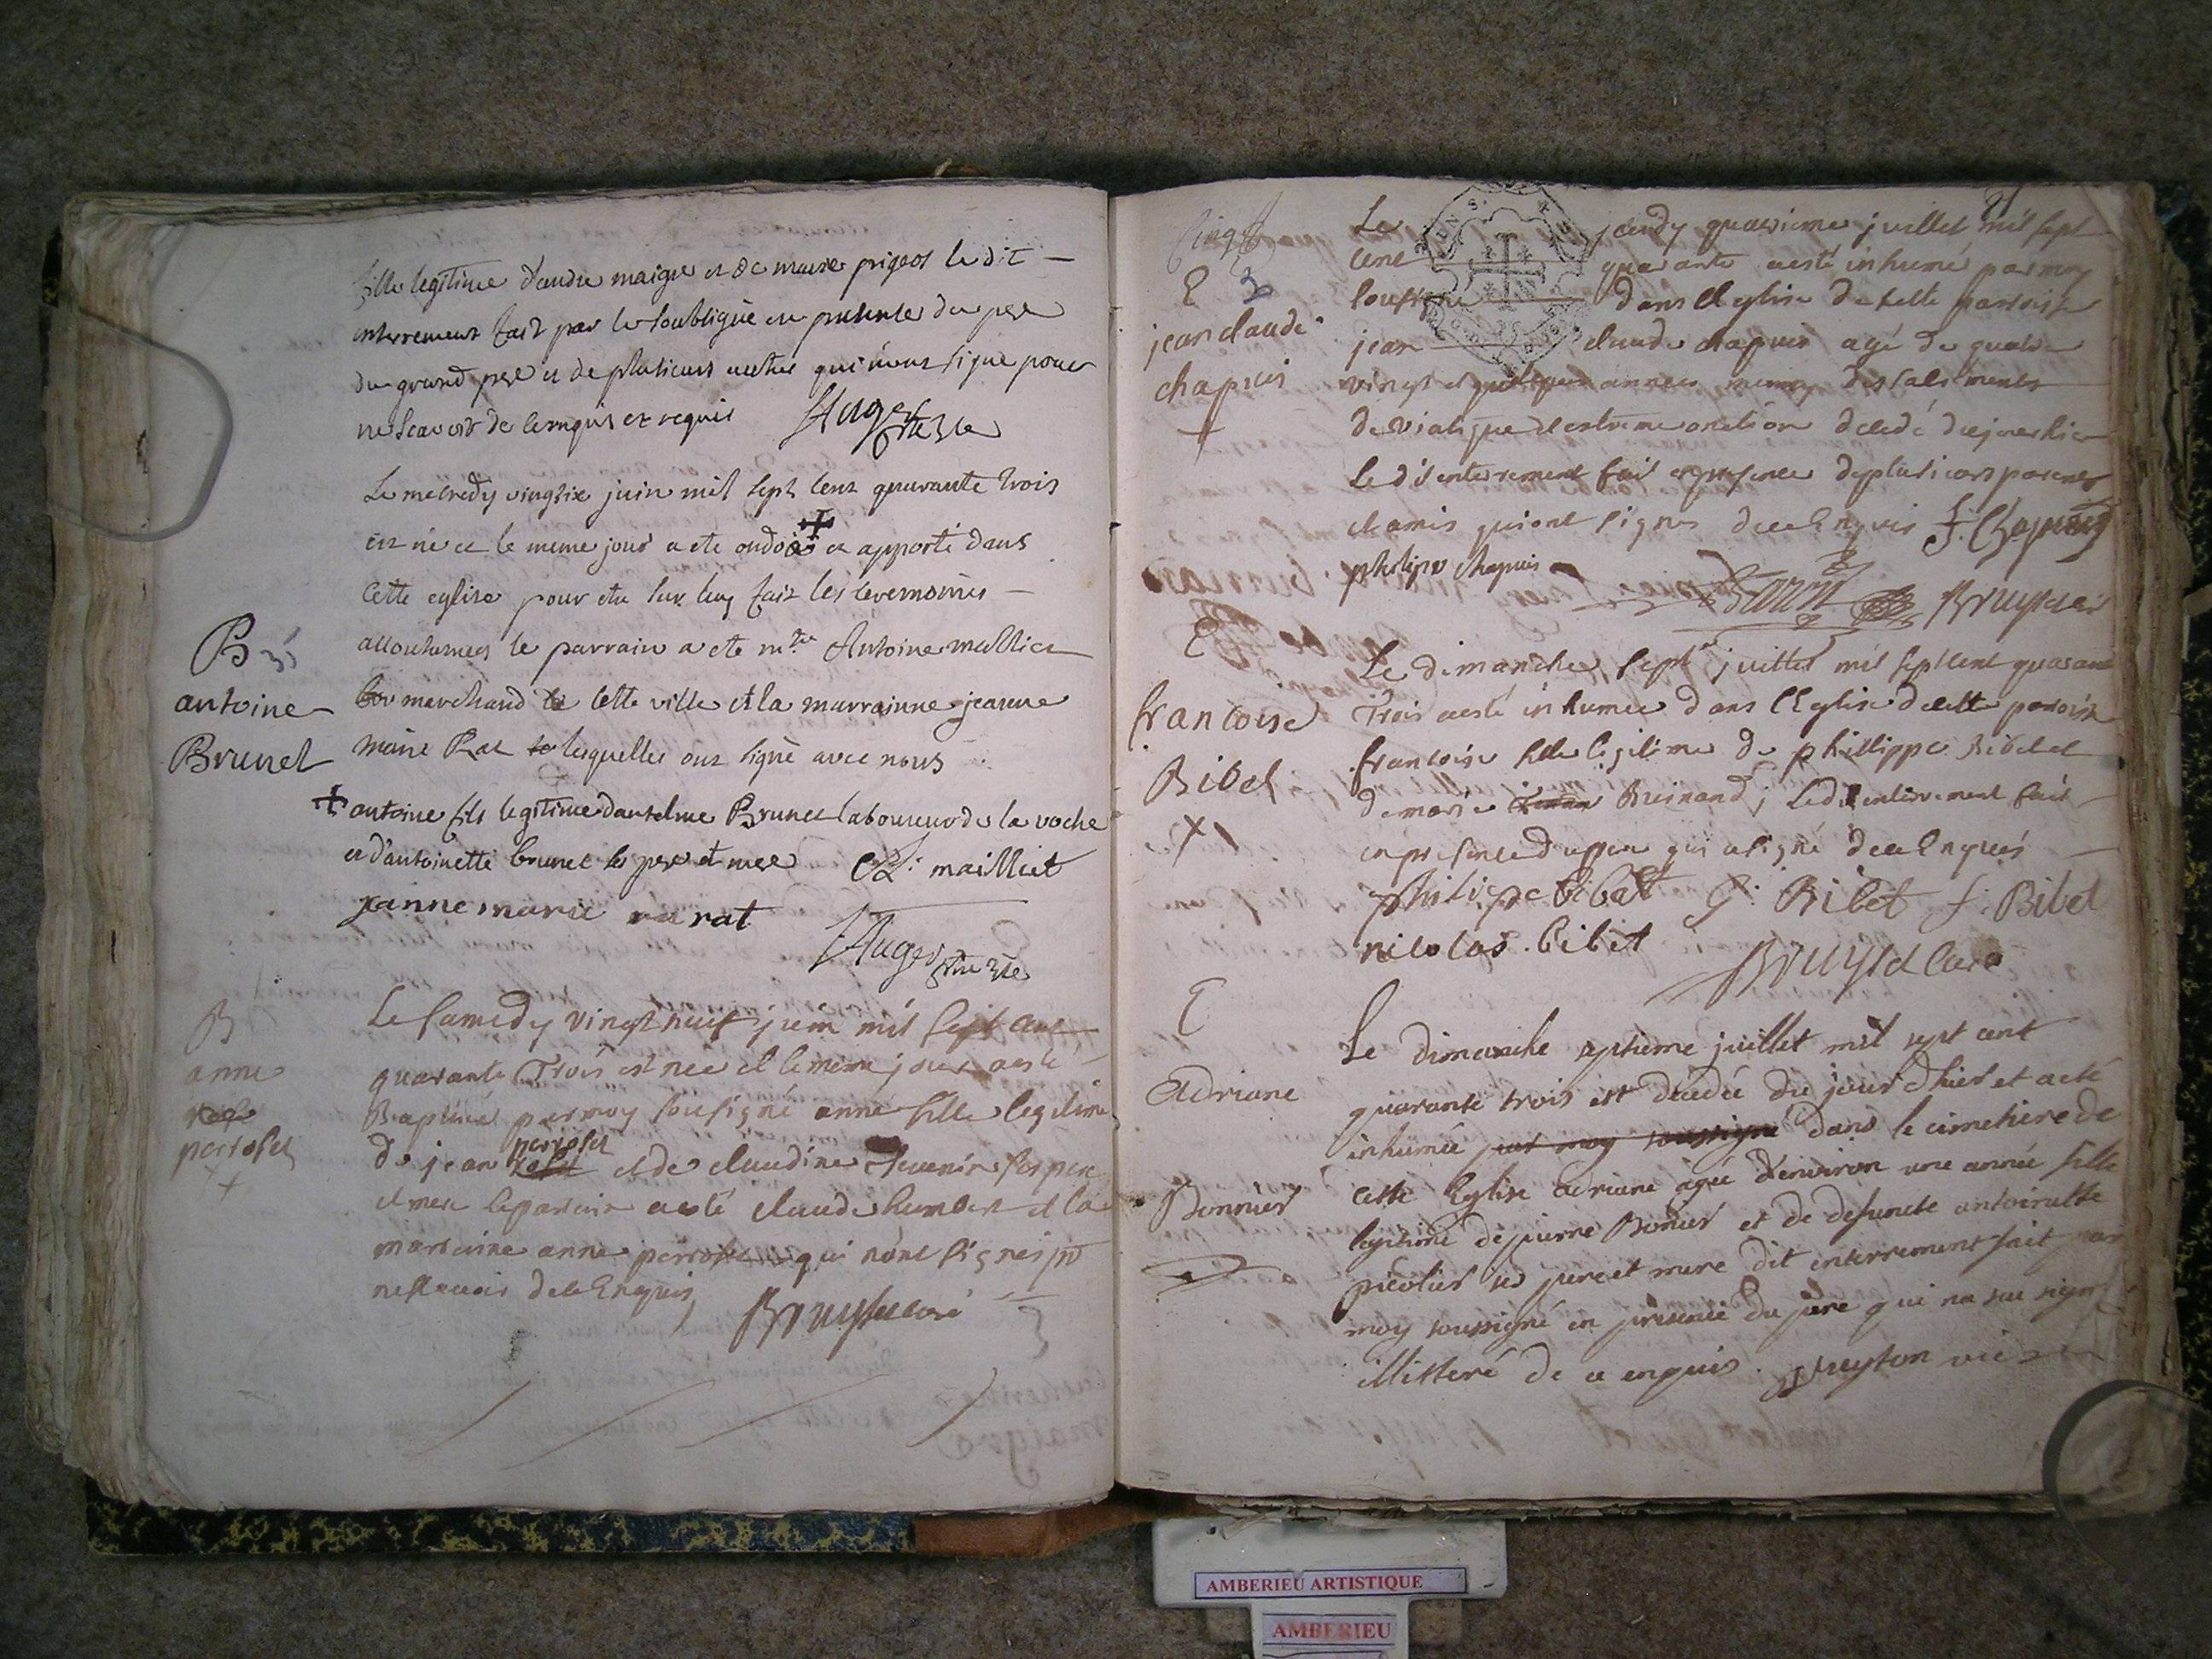 fille legitime d'andre maigre et de marie pigeos le dit
enterrement fait par le soubsigné en presence du pere
du grand pere et de plusieurs autres qui n'ont signé pour
ne scavoir de ce enquis et requis Auger
ptre vre
Le mecredy vingsix juin mil sept cent quarante trois
est né et le meme jour a ete ondoié et apporté dans
cette eglise pour etre sur luy fait les ceremonies
accoutumees le parrain a ete mtre Antoine mallict
marchand de cette ville et la marrainne jeanne
marie Rat lesquelles ont signé avec nous
B
antoine
Brunet
antoine fils legitime d'antelme Brunet laboureur de la
et d'antoinette brunet ses pere et mere maillict
janne marie rat
Auger ptre vre
B
anne
perroset
Le samedy vingt neuf juin mil sept cent
quarante Trois est nee et le meme jour a esté
Baptisée par moy sousigné anne fille legitime
de jean perroset et de claudine ses pere
et mere le parain a esté claude humbert et la
maraine anne perroset qui n'ont signés pr
ne scavoir de ce Enquis Bruyset curé
E
jean claude
chapuis
Le jeudy quatrieme juillet mil sept
cent quarante a esté inhumé par moy
soussigné dans l'Eglise de cette paroisse
jean claude chapuis agé de quatre
vingt et quelques années muny des sacrements
de viatique et extreme onction decedé du jour hier
le dit enterrement fait en presence de plusieurs parents
et amis qui ont signés de ce Enquis J. Chapuis
philipe chapuis Bruyset
E
francoise
Bibet
Le dimanche sept juillet mil sept cent quarante
Trois a esté inhumée dans l'Eglise de cette paroisse
francoise fille legitime de phillippe Bibet et
de marie Brinand; le dit enterrement fait
en presence du pere qui a signé de ce Enquis
philipe bibet G. Bibet f. Bibet
nicolas bibet Bruyset curé
E
Adriane
Bonnier
Le dimanche septieme juillet mil sept cent
quarante trois est décédée du jour d'hier et a eté
inhumée par moy soussigné dans le cimetiere de
cette Eglise adriane agée d'environ une année fille
legitime de pierre Bonier et de defuncte antoinette
ses pere et mere dit enterrement fait par
moy soussigné en presence du père qui na sue signer
illitteré de ce enquis. vic
AMBERIEU ARTISTIQUE
AMBERIEU